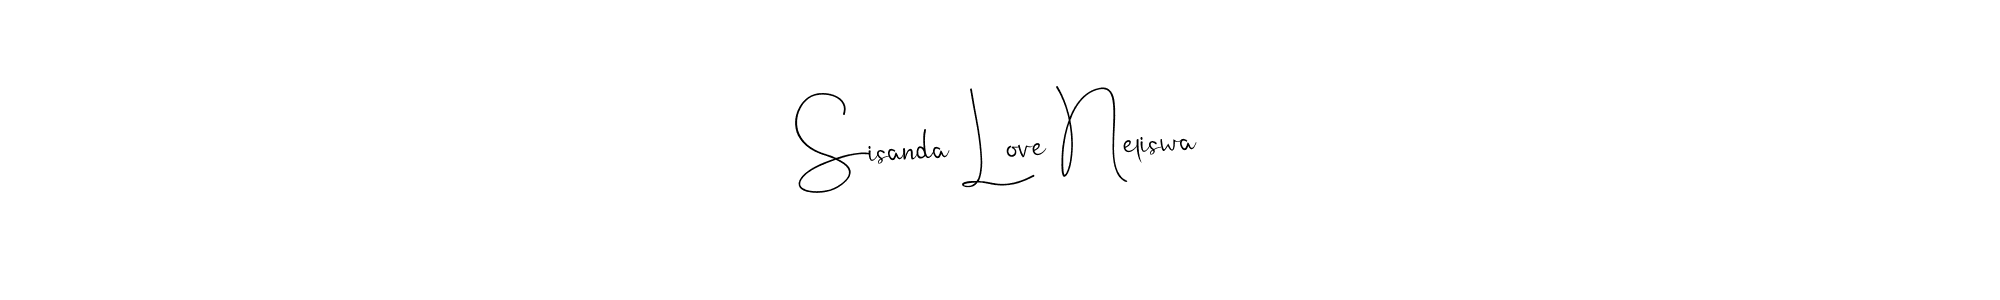 Sisanda Love Neliswa